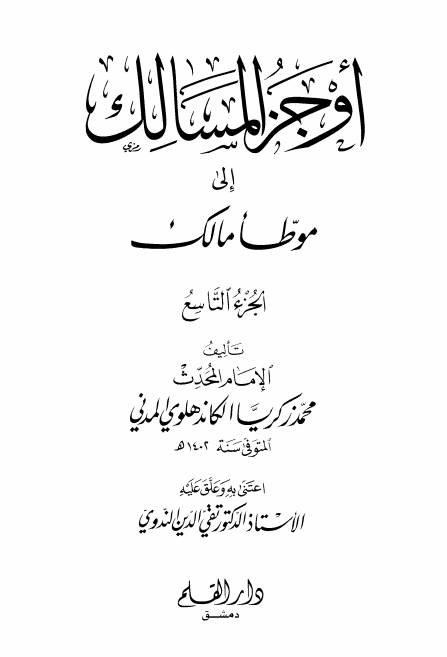 أَوْجَزُ المَسَالِكِ
إِلى
موطّأ مالك
الجُزْءُ التَّاسِعُ
تَأليفُ
الإمَام المُحَدِّث
محمّد زكريَّا الكاندهلوي المدني
المتوفىٰ سَنَة ١٤٠٢ هـ
اعتَنىٰ بِهِ وَعَلَّقَ عَلَيْهِ
الأستاذ الدكتور تقيّ الدّين النّدويّ
دار القلم
دمشق